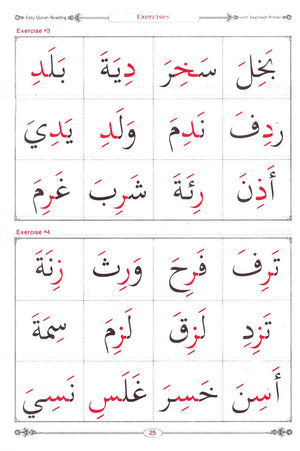 Easy Quran Reading Exercises with Baghdadi Primer
Exercise #3
بَخِلَ سَخِرَ دِيَةَ بَلَدِ
رَدِفَ نَدِمَ وَلَدِ يَدِيَ
أَذِنَ رِئَةَ شَرِبَ غَرِمَ
Exercise #4
تَرِفَ فَرِحَ وَرِثَ زِنَةَ
تَزِدِ لَزِقَ لَزِمَ سِمَةَ
أَسِنَ خَسِرَ غَلَسِ نَسِيَ
25